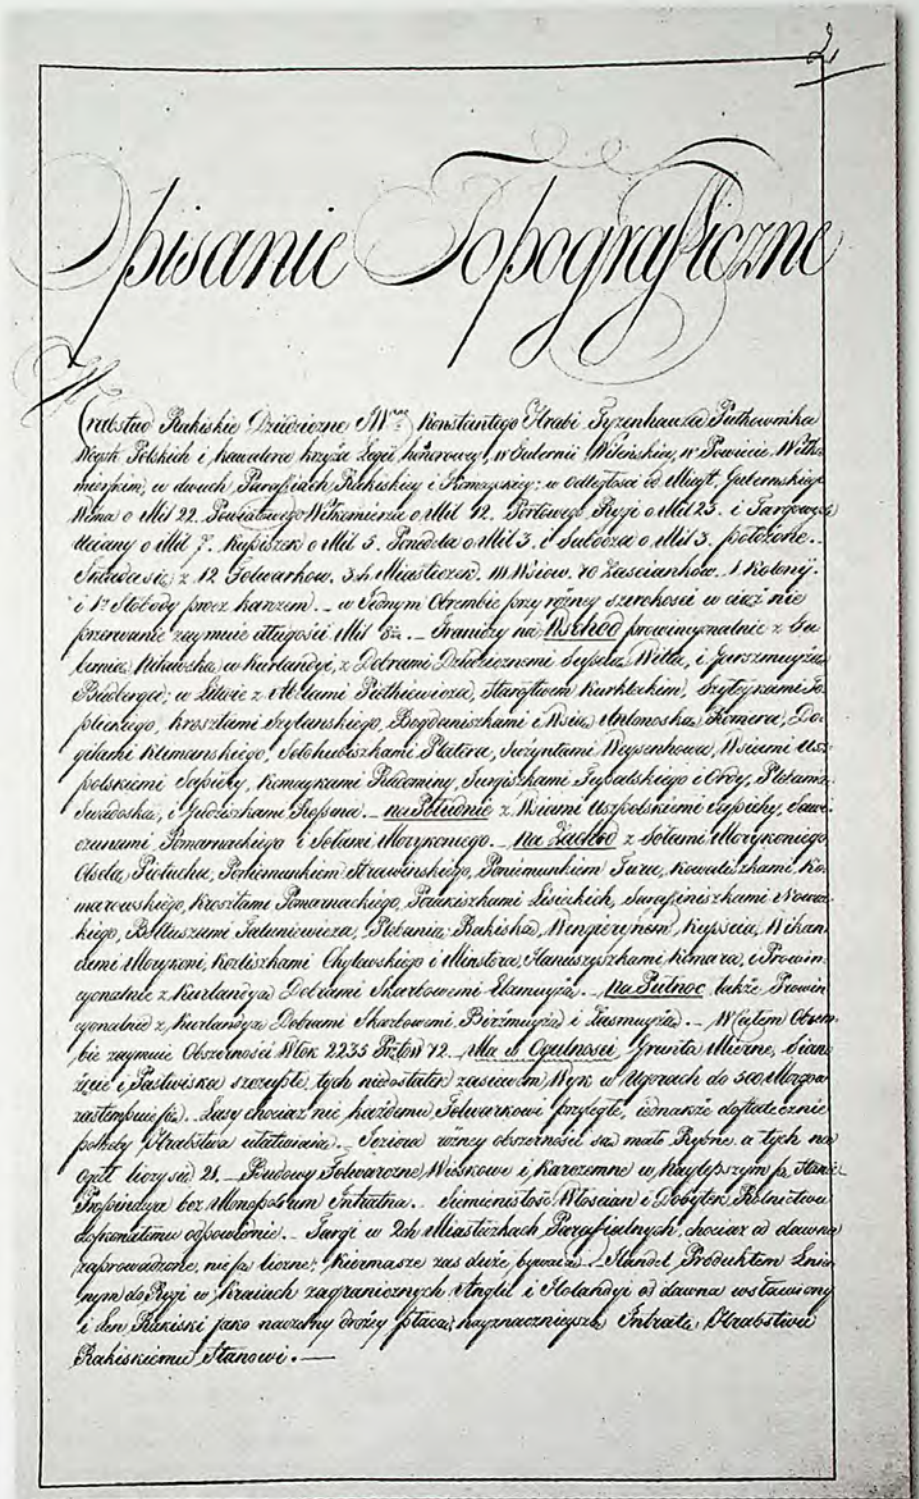 2
Opisanie Topograficzne
Hrabstwo Rakiskie Dziedziczne JW Konstantego Hrabi Tyzenhauza Pułkownika
Woysk Polskich i kawalera krzyża Legii honorowey, w Gubernii Wileńskiey, w Powiecie Wiłko-
mierskim, w dwuch Parafiach Rakiskiey i Komayskiey: w odległości od Miast, Guberniskiego
Wilna o Mil 22. Powiatowego Wiłkomierza o Mil 12. Portowego Rygi o Mil 25. i Targowych
Uciany o Mil 7. Kupiszek o Mil 5. Poniedela o Mil 3. i Subocza o Mil 3. położone.
Składa się z 12 Folwarkow. 3ch Miasteczek. 111 Wsiow. 70 Zascianków. 1. Kolonij.
i 1 Słobody procz karczem. _ w Jednym Obrembie przy rózney szerokosci w ciąż nie
przerwanie zaymuie długości Mil 8. _ Graniczy na Wschod prowincyonalnie z Gu-
bernią Mitawską w Kurlandyi, z Dobrami Dziedzicznemi Witta, i Garszmuyżą
Budberga; w Litwie z Abelami Pietkiewicza, Starostwem Kurkleckim, Szyleykami To-
plickiego, Krosztami Szylanskiego, Bogdaniszkami i Wsią Antonoską Komera, Do-
giłami Klimanskiego, Sołohubiszkami Platera, Sużyntami Weysenhowa, Wsiami Usz-
polskiemi Sapiehy, Komaykami Radominy, Jurgiszkami i Ordy, Plebanią
Swiadoską, i _ na Południe z Wsiami Uszpolskiemi Sapiehy, Sawi-
czunami Pomarnackiego i Sołami Morykoniego. _ Na Zachod z Sołami Morykoniego
Obelą Piotucha, Poniemunkiem Strawińskiego, Poniemunkiem Tura, Kowaliszkami Ko-
marowskiego, Krosztami Pomarnackiego, Paukiszkami Lisieckich, Sarafiniszkami Nowac-
kiego, Jałuniewicza, Plebanią Rakiską, Wengierynem, Wikan-
dami Morykoni, Kozliszkami Chylewskiego i Minstera, Haniuszyszkami Komara, i Prowin-
cyonalnie z Kurlandyą Dobrami Skarbowemi Elamuyżą. _ na Pułnoc także Prowin-
cyonalnie z Kurlandyą Dobrami Skarbowemi Birżmuyżą i Lasmuyżą. _ W całem Obrem-
bie zaymuie Obszerności Włok 2235 Prętów 72. Ma w Ogulności, Grunta Mierne, Siano-
żęcie i Pastwiska szczupłe, tych niedostatek zasiewem Wyk w Ugorach do 500 Morgow
zastempuie się. _ Lasy chociaż nie każdemu Folwarkowi przyległe, iednakże dostatecznie
potrzeby Hrabstwa ułatwiaią. _ Jeziora rózney obszerności są mało Rybne a tych na
ogół liczy się 21. _ Budowy Folwarczne, Wieskowe i karczemne w Naylepszym są Stanie
Propinacya bez Monopolium Intratna. _ Siemienistość Włościan i Dobytek Rolnictwu
doskonałemu odpowiednie. _ Targi w 2ch Miasteczkach Parafialnych, chociaz od dawna
zaprowadzone, nie są liczne; Kiermasze zas duże bywaią. _ Handel Produktem Lnia-
nym do Rygi w Kraiach zagranicznych Anglii i Holandyi od dawna wsławiony
i Len Rakiski jako drożey płacą, nayznacznieyszą Intratę, Hrabstwu
Rakiskiemu Stanowi. _